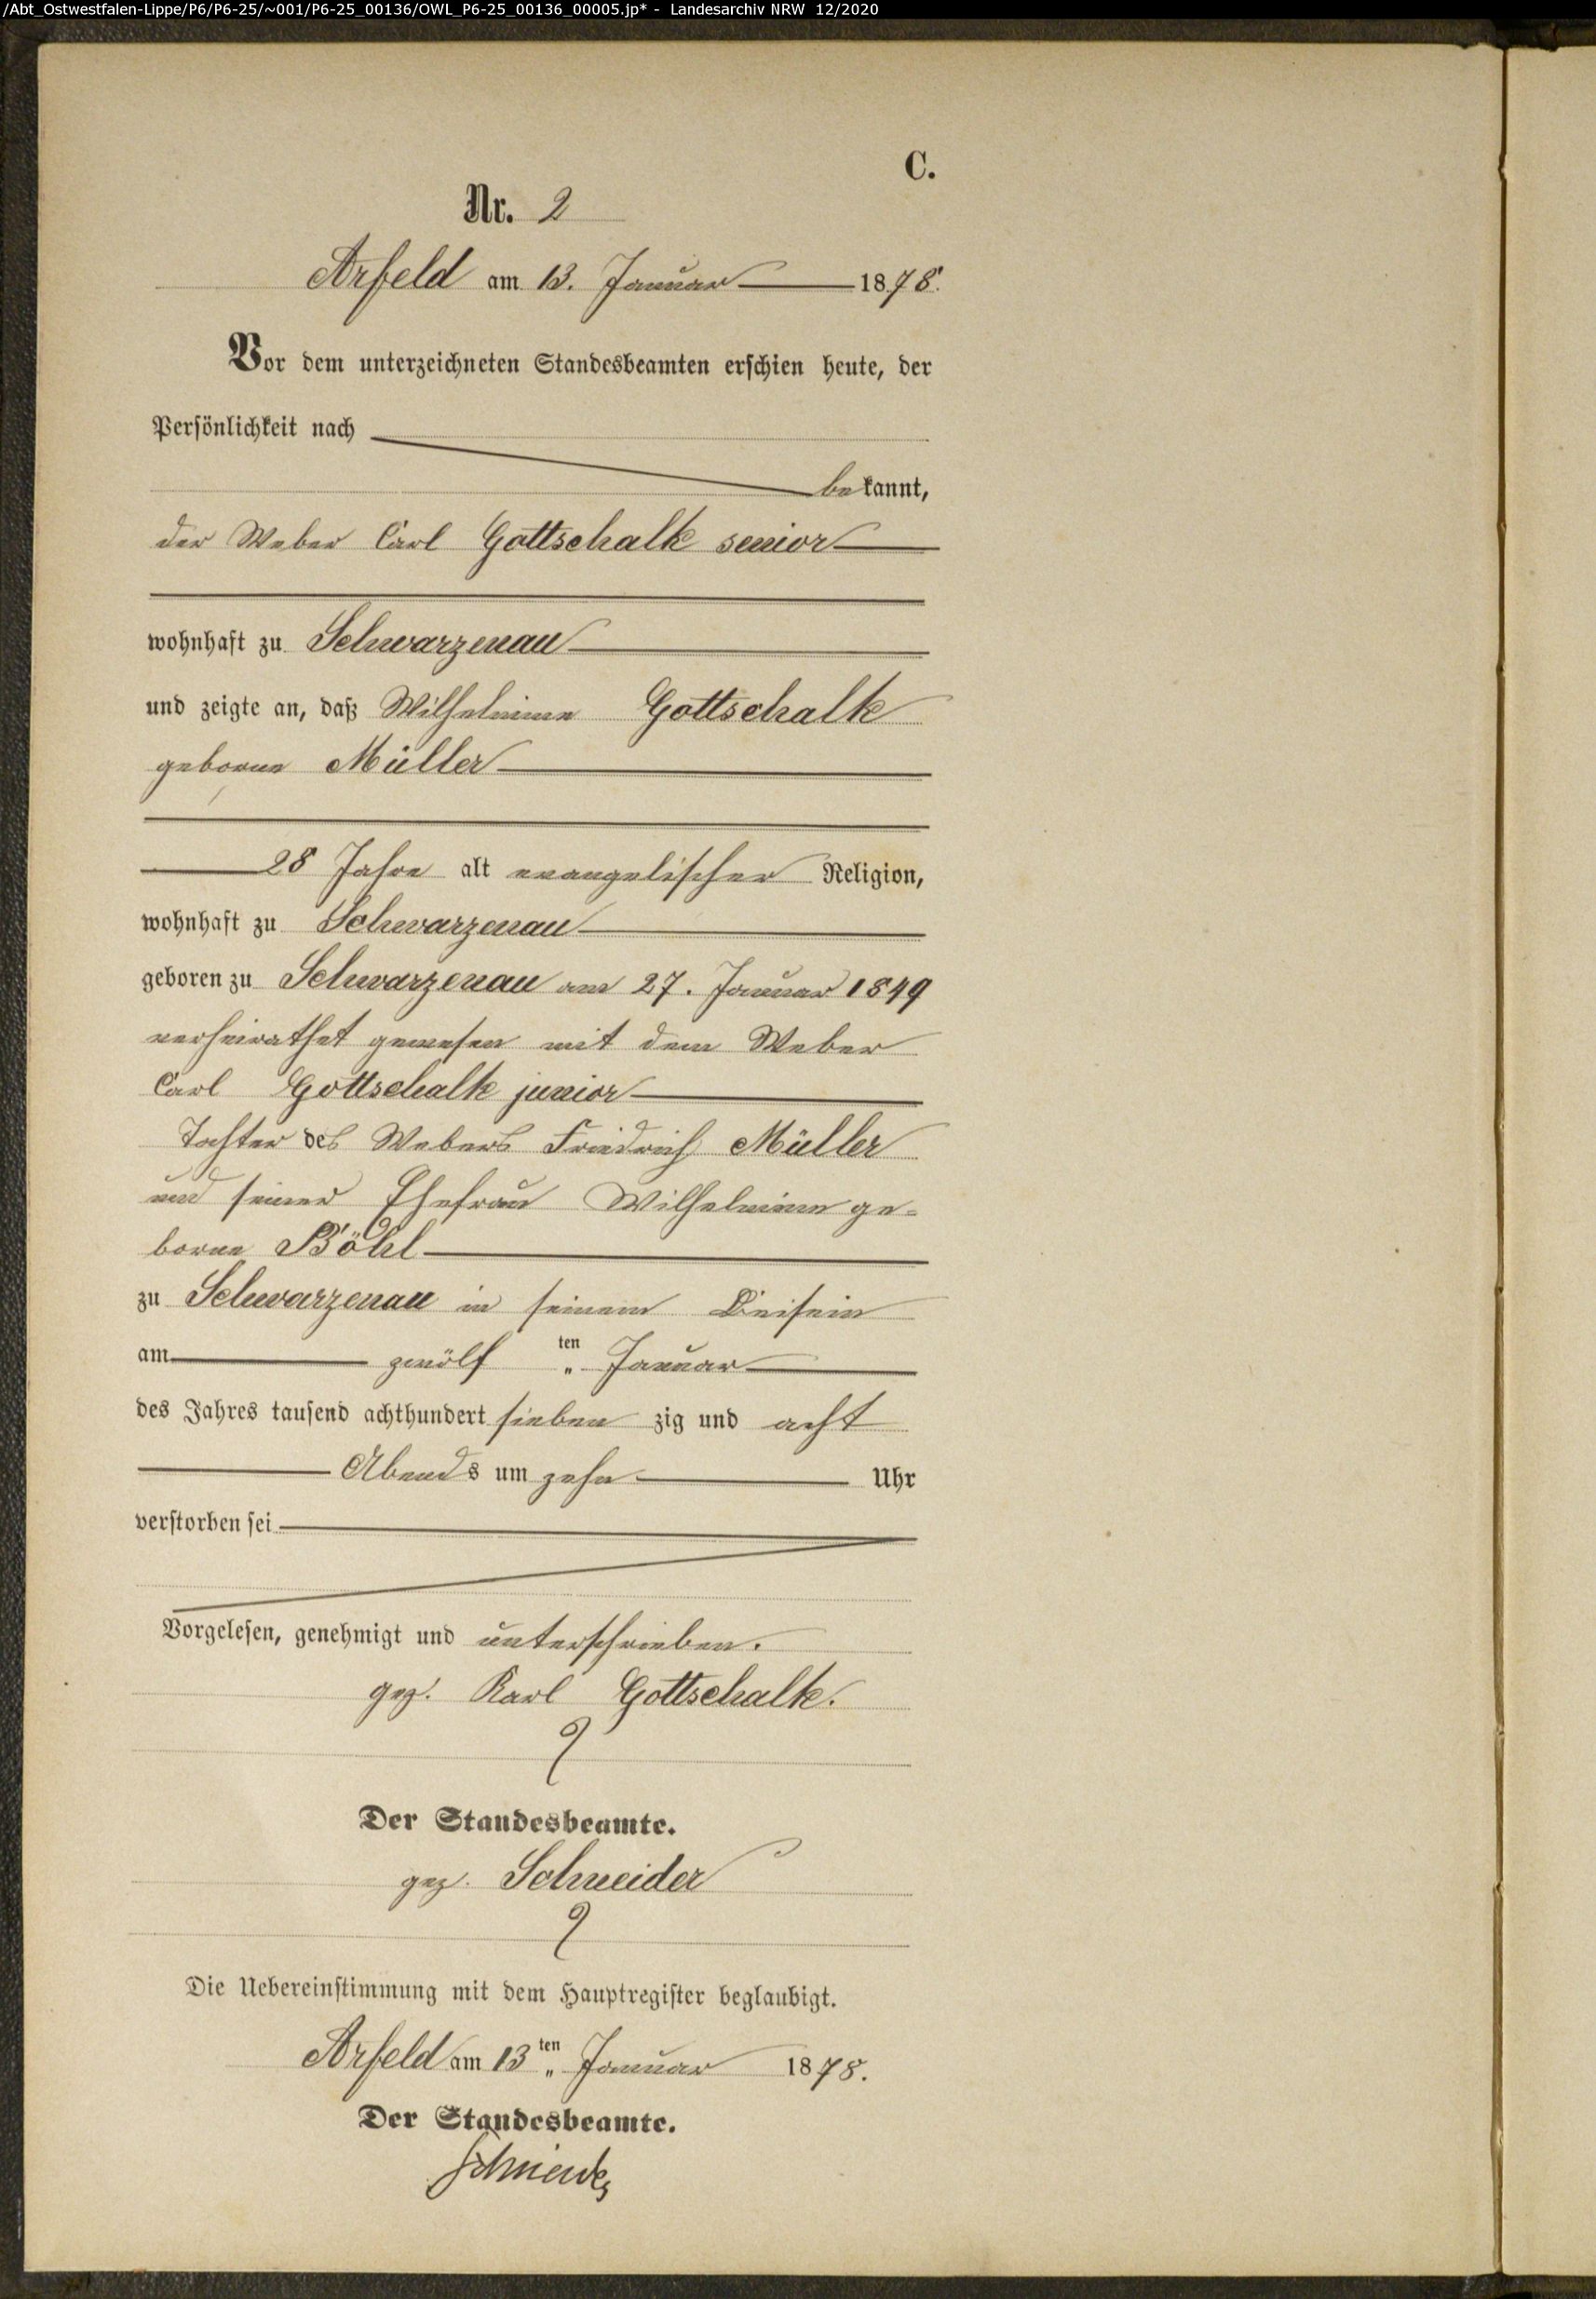 /Abt_Ostwestfalen-Lippe/P6/P6-25/~001/P6-25_00136/OWL_P6-25_00136_00005.jp* - Landesarchiv NRW 12/2020
C.
Nr. 2
Arfeld am 13. Januar 1878.
Vor dem unterzeichneten Standesbeamten erschien heute, der
Persönlichkeit nach
bekannt,
der Weber Carl Gottschalk senior
wohnhaft zu Schwarzenau
und zeigte an, daß Wilhelmine Gottschalk
geborne Müller
28 Jahre alt evangelischer Religion,
wohnhaft zu Schwarzenau
geboren zu Schwarzenau am 27. Januar 1849
verheirathet gewesen mit dem Weber
Carl Gottschalk junior
Tochter des Webers Friedrich Müller
und seiner Ehefrau Wilhelmine ge-
borne Böhl
zu Schwarzenau in seinem Beisein
am zwölf ten Januar
des Jahres tausend achthundert sieben zig und acht
Abends um zehn Uhr
verstorben sei
Vorgelesen, genehmigt und unterschrieben.
gez. Karl Gottschalk.
Der Standesbeamte.
gez. Schneider
Die Uebereinstimmung mit dem Hauptregister beglaubigt.
Arfeld am 13ten Januar 1878.
Der Standesbeamte.
Schneider